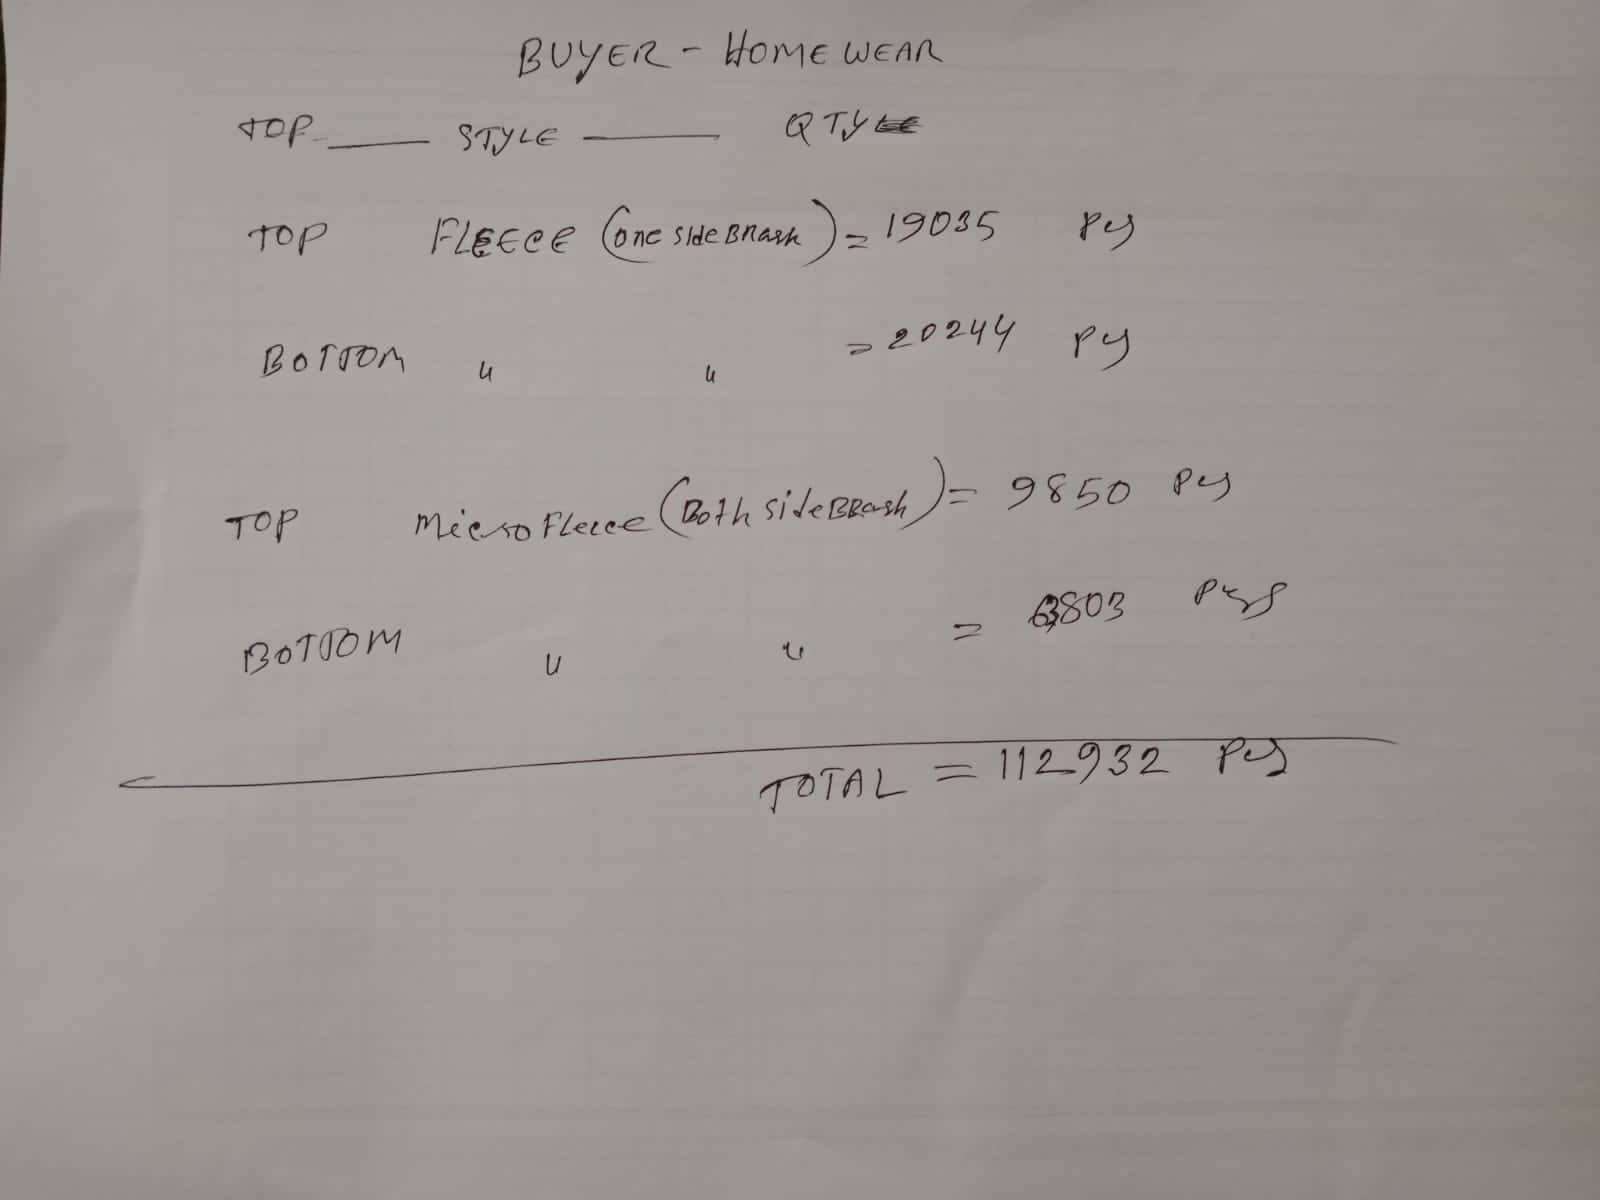 BUYER - HOME WEAR
TOP — STYLE — QTY
TOP FLEECE (one side Brash) = 19035 Pcs
BOTTOM " " = 20244 Pcs
TOP Micro Fleece (Both side BRash) = 9850 Pcs
BOTTOM " " = 803 Pcs
TOTAL = 112932 Pcs